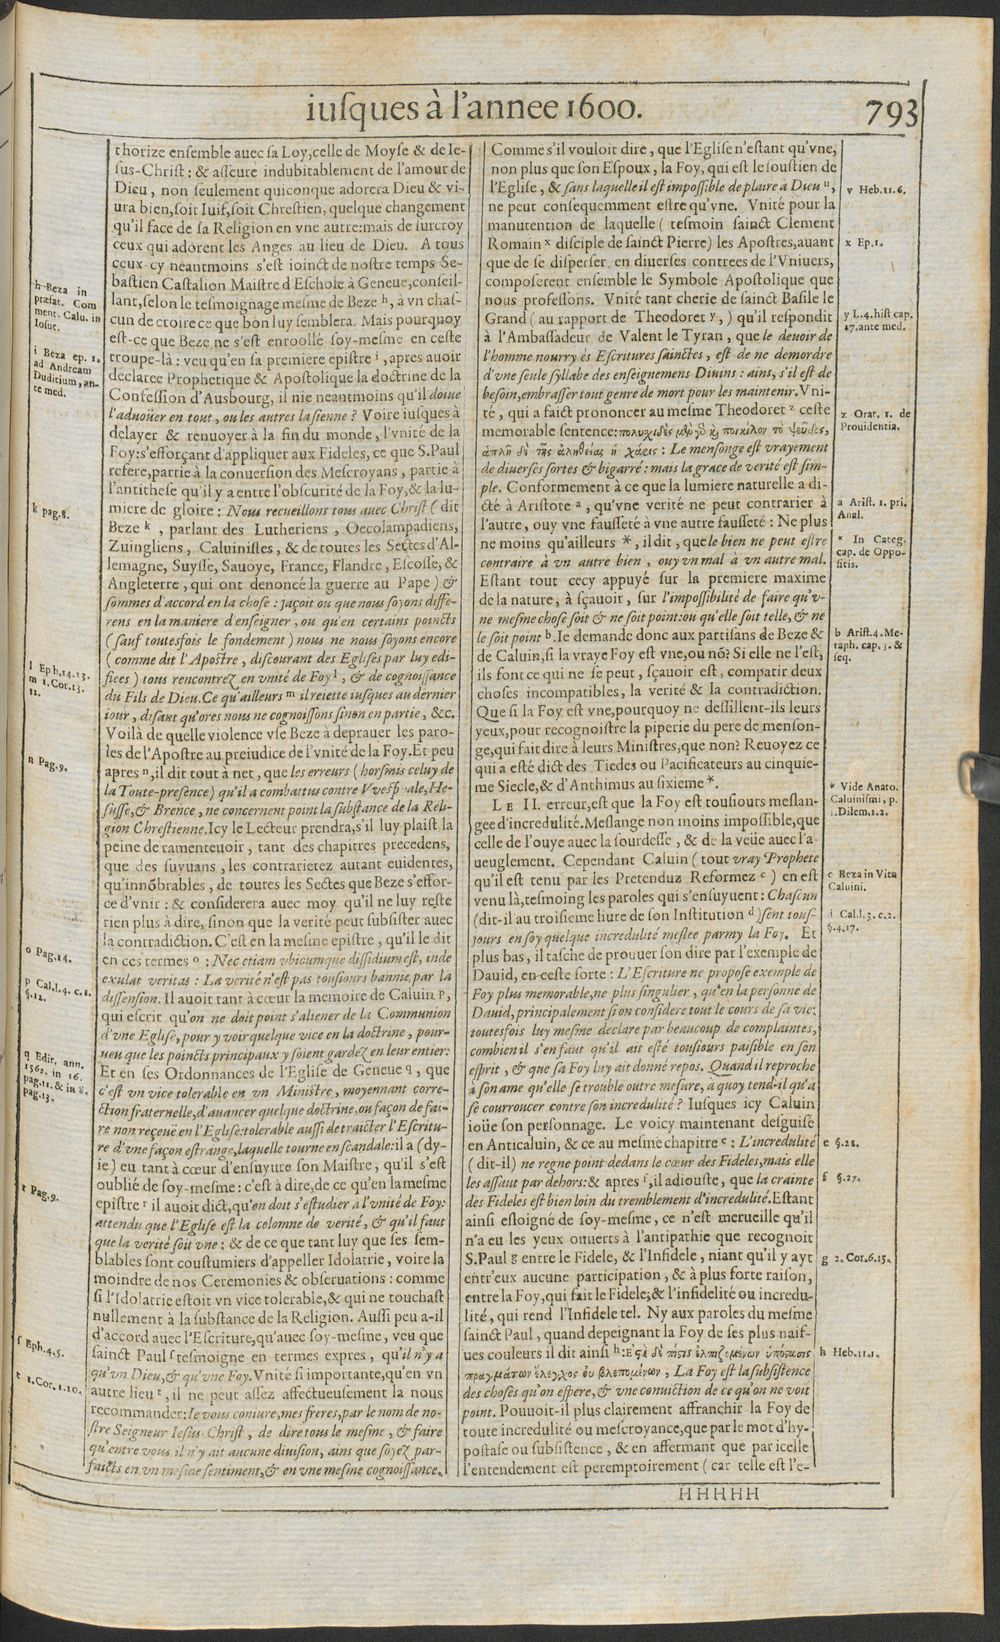 iuſques à l'annee 1600.
793
thorize enſemble auec ſa Loy, celle de Moyſe & de Ie-
ſus-Chriſt : & aſſeure indubitablement de l'amour de
Dieu, non ſeulement quiconque adorera Dieu & vi-
ura bien, ſoit Iuif, ſoit Chreſtien, quelque changement
qu'il face de ſa Religion en vne autre: mais de ſurcroy
ceux qui adorent les Anges au lieu de Dieu. A tous
ceux-cy neantmoins s'eſt ioinct de noſtre temps Se-
baſtien Caſtalion Maiſtre d'Eſchole à Geneue, conſeil-
lant, ſelon le teſmoignage meſme de Beze h, à vn chaſ-
cun de croire ce que bon luy ſemblera. Mais pourquoy
eſt-ce que Beze ne s'eſt enroollé ſoy-meſme en ceſte
troupe-là : veu qu'en ſa premiere epiſtre i, apres auoir
declaree Prophetique & Apoſtolique la doctrine de la
Confeſſion d'Ausbourg, il nie neantmoins qu'il doiue
l'aduoüer en tout, ou les autres la ſienne ? Voire iuſques à
delayer & renuoyer à la fin du monde, l'vnité de la
Foy: s'efforçant d'appliquer aux Fideles, ce que S. Paul
refere, partie à la conuerſion des Meſcroyans, partie à
l'antitheſe qu'il y a entre l'obſcurité de la Foy, & la lu-
miere de gloire : Nous recueillons tous auec Chriſt ( dit
Beze k, parlant des Lutheriens, Oecolampadiens,
Zuingliens, Caluiniſtes, & de toutes les Sectes d'Al-
lemagne, Suyſſe, Sauoye, France, Flandre, Eſcoſſe, &
Angleterre, qui ont denoncé la guerre au Pape ) &
ſommes d'accord en la choſe : jaçoit ou que nous ſoyons diffe-
rens en la maniere d'enſeigner, ou qu'en certains poincts
( ſauf toutesfois le fondement ) nous ne nous ſoyons encore
( comme dit l'Apoſtre, diſcourant des Egliſes par luy edi-
fiees ) tous rencontrez en vnité de Foy l, & de cognoiſſance
du Fils de Dieu. Ce qu'ailleurs m il reiette iuſques au dernier
iour, diſant qu'ores nous ne cognoiſſons ſinon en partie, &c.
Voilà de quelle violence vſe Beze à deprauer les paro-
les de l'Apoſtre au preiudice de l'vnité de la Foy. Et peu
apres n, il dit tout à net, que les erreurs ( horſmis celuy de
la Toute-preſence) qu'il a combattus contre Vveſtphale, He-
ſuſſe, & Brence, ne concernent point la ſubſtance de la Reli-
gion Chreſtienne. Icy le Lecteur prendra, s'il luy plaiſt la
peine de ramenteuoir, tant des chapitres precedens,
que des ſuyuans, les contrarietez autant euidentes,
qu'innõbrables, de toutes les Sectes que Beze s'effor-
ce d'vnir : & conſiderera auec moy qu'il ne luy reſte
rien plus à dire, ſinon que la verité peut ſubſiſter auec
la contradiction. C'eſt en la meſme epiſtre, qu'il le dit
en ces termes o : Nec etiam vbicumque diſſidium eſt, inde
exulat veritas : La verité n'eſt pas tousiours bannie par la
diſſenſion. Il auoit tant à cœur la memoire de Caluin p,
qui eſcrit qu'on ne doit point s'aliener de la Communion
d'vne Egliſe, pour y voir quelque vice en la doctrine, pour-
ueu que les poincts principaux y ſoient gardez en leur entier:
Et en ſes Ordonnances de l'Egliſe de Geneue q, que
c'eſt vn vice tolerable en vn Miniſtre, moyennant corre-
ction fraternelle, d'auancer quelque doctrine, ou façon de fai-
re non reçeuë en l'Egliſe: tolerable auſſi de traicter l'Eſcritu-
re d'vne façon eſtrange, laquelle tourne en ſcandale: il a ( dy-
ie ) eu tant à cœur d'enſuyure ſon Maiſtre, qu'il s'eſt
oublié de ſoy-meſme : c'eſt à dire, de ce qu'en la meſme
epiſtre r il auoit dict, qu'on doit s'eſtudier à l'vnité de Foy:
attendu que l'Egliſe eſt la colomne de verité, & qu'il faut
que la verité ſoit vne : & de ce que tant luy que ſes ſem-
blables ſont couſtumiers d'appeller Idolatrie, voire la
moindre de nos Ceremonies & obſeruations : comme
ſi l'Idolatrie eſtoit vn vice tolerable, & qui ne touchaſt
nullement à la ſubſtance de la Religion. Auſſi peu a-il
d'accord auec l'Eſcriture, qu'auec ſoy-meſme, veu que
ſainct Paul ſ teſmoigne en termes expres, qu'il n'y a
qu'vn Dieu, & qu'vne Foy. Vnité ſi importante, qu'en vn
autre lieu t, il ne peut aſſez affectueuſement la nous
recommander: Ie vous coniure, mes freres, par le nom de no-
ſtre Seigneur Ieſus-Chriſt, de dire tous le meſme, & faire
qu'entre vous il n'y ait aucune diuiſion, ains que ſoyez par-
faicts en vn meſme ſentiment, & en vne meſme cognoiſſance.
h Beza in
præfat. Com
ment. Calu. in
Ioſue.
i Beza ep. 1.
ad Andream
Duditium, an-
te med.
k pag. 8.
l Eph. 14. 13.
m 1. Cor. 13.
12.
n Pag. 9.
o Pag. 14.
p Cal. l. 4. c. 1.
§. 12.
q Edit. ann.
1562. in 16.
pag. 11. & in 8.
pag. 13.
r Pag. 9.
ſ Eph. 4. 5.
t 1. Cor. 1. 10.
Comme s'il vouloit dire, que l'Egliſe n'eſtant qu'vne,
non plus que ſon Eſpoux, la Foy, qui eſt le ſouſtien de
l'Egliſe, & ſans laquelle il eſt impoſſible de plaire à Dieu u,
ne peut conſequemment eſtre qu'vne. Vnité pour la
manutention de laquelle ( teſmoin ſainct Clement
Romain x diſciple de ſainct Pierre) les Apoſtres, auant
que de ſe diſperſer en diuerſes contrees de l'Vniuers,
compoſerent enſemble le Symbole Apoſtolique que
nous profeſſons. Vnité tant cherie de ſainct Baſile le
Grand ( au rapport de Theodoret y, ) qu'il reſpondit
à l'Ambaſſadeur de Valent le Tyran, que le deuoir de
l'homme nourry és Eſcritures ſainctes, eſt de ne demordre
d'vne ſeule ſyllabe des enſeignemens Diuins : ains, s'il eſt de
beſoin, embraſſer tout genre de mort pour les maintenir. Vni-
té, qui a faict prononcer au meſme Theodoret z ceſte
memorable ſentence: πολυχιδὲς μὲν γὰρ κὶ ποικίλον τὸ ψεῦδες,
ἁπλῆ δὲ τῆς ἀληθείας ἡ χάρις : Le menſonge eſt vrayement
de diuerſes ſortes & bigarré : mais la grace de verité eſt ſim-
ple. Conformement à ce que la lumiere naturelle a di-
cté à Ariſtote a, qu'vne verité ne peut contrarier à
l'autre, ouy vne fauſſeté à vne autre fauſſeté : Ne plus
ne moins qu'ailleurs *, il dit, que le bien ne peut eſtre
contraire à vn autre bien, ouy vn mal à vn autre mal.
Eſtant tout cecy appuyé ſur la premiere maxime
de la nature, à ſçauoir, ſur l'impoſſibilité de faire qu'v-
ne meſme choſe ſoit & ne ſoit point: ou qu'elle ſoit telle, & ne
le ſoit point b. Ie demande donc aux partiſans de Beze &
de Caluin, ſi la vraye Foy eſt vne, ou nõ? Si elle ne l'eſt,
ils font ce qui ne ſe peut, ſçauoir eſt, compatir deux
choſes incompatibles, la verité & la contradiction.
Que ſi la Foy eſt vne, pourquoy ne deſſillent-ils leurs
yeux, pour recognoiſtre la piperie du pere de menſon-
ge, qui fait dire à leurs Miniſtres, que non? Reuoyez ce
qui a eſté dict des Tiedes ou Pacificateurs au cinquie-
me Siecle, & d'Anthimus au ſixieme *.
LE II. erreur, eſt que la Foy eſt touſiours meſlan-
gee d'incredulité. Meſlange non moins impoſſible, que
celle de l'ouye auec la ſourdeſſe, & de la veüe auec l'a-
ueuglement. Cependant Caluin ( tout vray Prophete
qu'il eſt tenu par les Pretenduz Reformez c ) en eſt
venu là, teſmoing les paroles qui s'enſuyuent : Chaſcun
(dit-il au troiſieme liure de ſon Inſtitution d )ſent touſ-
jours en ſoy quelque incredulité meſlee parmy la Foy. Et
plus bas, il taſche de prouuer ſon dire par l'exemple de
Dauid, en ceſte ſorte : L'Eſcriture ne propoſe exemple de
Foy plus memorable, ne plus ſingulier, qu'en la perſonne de
Dauid, principalement ſi on conſidere tout le cours de ſa vie:
toutesfois luy meſme declare par beaucoup de complaintes,
combien il s'en faut qu'il ait eſté touſiours paiſible en ſon
eſprit, & que ſa Foy luy ait donné repos. Quand il reproche
à ſon ame qu'elle ſe trouble outre meſure, à quoy tend-il qu'à
ſe courroucer contre ſon incredulité ? Iuſques icy Caluin
ioüe ſon perſonnage. Le voicy maintenant deſguiſé
en Anticaluin, & ce au meſme chapitre e : L'incredulité
( dit-il ) ne regne point dedans le cœur des Fideles, mais elle
les aſſaut par dehors: & apres f, il adiouſte, que la crainte
des Fideles eſt bien loin du tremblement d'incredulité. Eſtant
ainſi eſloigné de ſoy-meſme, ce n'eſt merueille qu'il
n'a eu les yeux ouuerts à l'antipathie que recognoit
S. Paul g entre le Fidele, & l'Infidele, niant qu'il y ayt
entr'eux aucune participation, & à plus forte raiſon,
entre la Foy, qui fait le Fidele; & l'infidelité ou incredu-
lité, qui rend l'Infidele tel. Ny aux paroles du meſme
ſainct Paul, quand depeignant la Foy de ſes plus naif-
ues couleurs il dit ainſi h : Ἔστι δὲ πίστις ἐλπιζομένων ὑπόστασις
πραγμάτων ἔλεγχος οὐ βλεπομένων, La Foy eſt la ſubſiſtence
des choſes qu'on eſpere, & vne conuiction de ce qu'on ne voit
point. Pouuoit-il plus clairement affranchir la Foy de
toute incredulité ou meſcroyance, que par le mot d'hy-
poſtaſe ou ſubſiſtence, & en affermant que par icelle
l'entendement eſt peremptoirement ( car telle eſt l'e-
v Heb. 11. 6.
x Ep. 1.
y L. 4. hiſt cap.
17. ante med.
z Orat. 1. de
Prouidentia.
a Ariſt. 1. pri.
Anal.
* In Categ.
cap. de Oppo-
ſitis.
b Ariſt. 4. Me-
taph. cap. 3. &
ſeq.
* Vide Anato.
Caluiniſmi, p.
1. Dilem. 1. 2.
c Beza in Vita
Caluini.
d Cal. l. 3. c. 2.
§. 4. 17.
e §. 21.
f §. 27.
g 2. Cor. 6. 15.
h Heb. 11. 1.
HHHHH